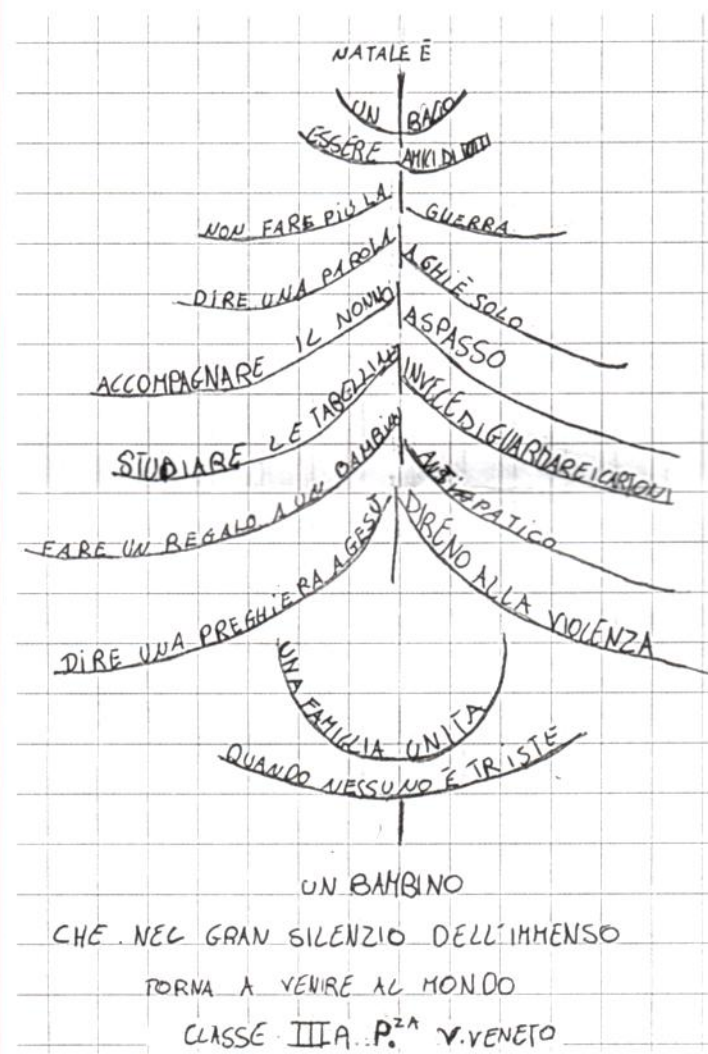 NATALE È
UN BACIO
ESSERE AMICI DI TUTTI
NON FARE PIÙ LA GUERRA
DIRE UNA PAROLA A CHI È SOLO
ACCOMPAGNARE IL NONNO A SPASSO
STUDIARE LE TABELLINE INVECE DI GUARDARE I CARTONI
FARE UN REGALO A UN BAMBINO ANTIPATICO
DIRE UNA PREGHIERA A GESÙ DIRE NO ALLA VIOLENZA
UNA FAMIGLIA UNITA
QUANDO NESSUNO È TRISTE
UN BAMBINO
CHE NEL GRAN SILENZIO DELL'IMMENSO
TORNA A VENIRE AL MONDO
CLASSE III A P.ZA V. VENETO